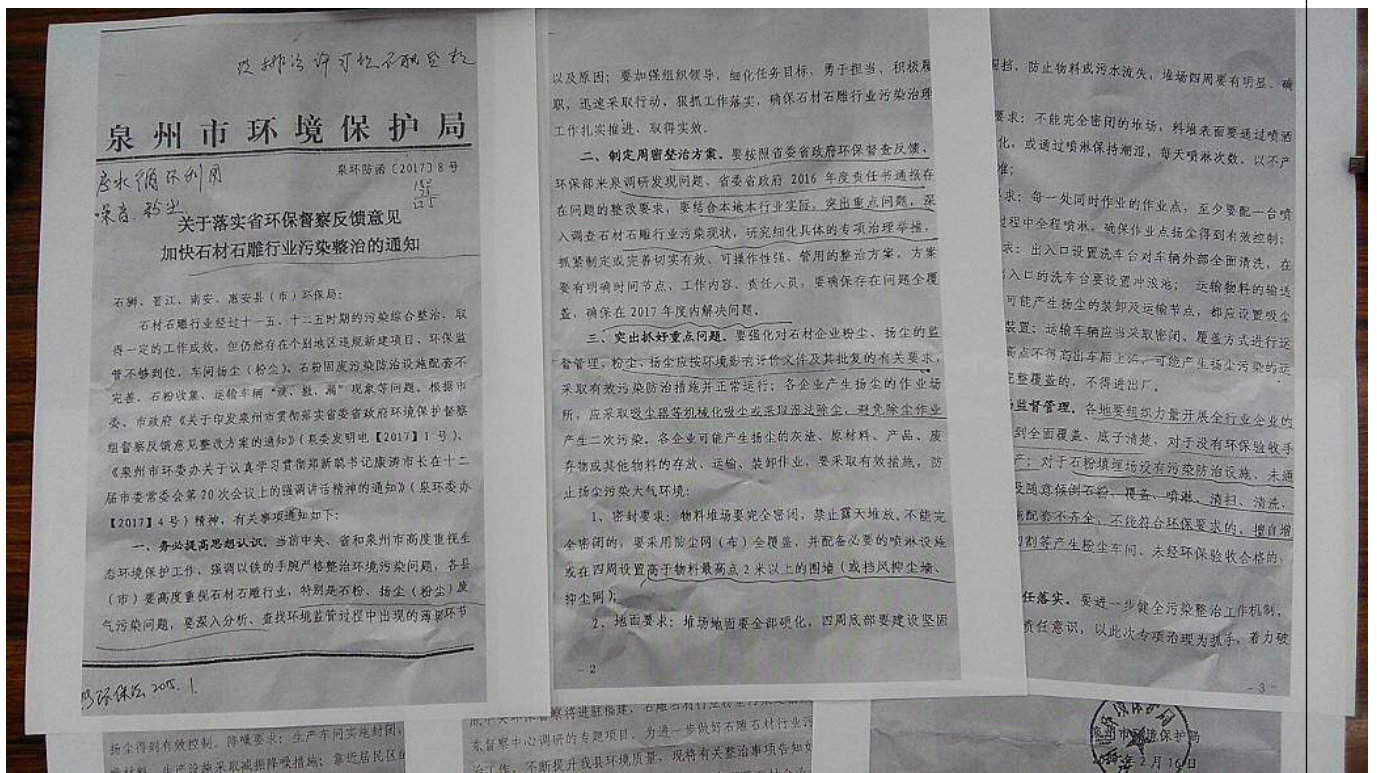 泉州市环境保护局
泉环防函〔2017〕8号
废水循环利用
噪音、粉尘
关于落实省环保督察反馈意见
加快石材石雕行业污染整治的通知
石狮、晋江、南安、惠安县（市）环保局：
石材石雕行业经过十一五、十二五时期的污染综合整治，取
得一定的工作成效，但仍然存在个别地区违规新建项目、环保监
管不够到位，车间扬尘（粉尘）、石粉固废污染防治设施配套不
完善，石粉收集、运输车辆“滴、撒、漏”现象等问题。根据市
委、市政府《关于印发泉州市贯彻落实省委省政府环境保护督察
组督察反馈意见整改方案的通知》（泉委发明电【2017】1号）、
《泉州市环委办关于认真学习贯彻郑新聪书记康涛市长在十二
届市委常委会第20次会议上的强调讲话精神的通知》（泉环委办
【2017】4号）精神，有关事项通知如下：
一、务必提高思想认识。当前中央、省和泉州市高度重视生
态环境保护工作，强调以铁的手腕严格整治环境污染问题，各县
（市）要高度重视石材石雕行业，特别是石粉、扬尘（粉尘）废
气污染问题，要深入分析、查找环境监管过程中出现的薄弱环节
以及原因；要加强组织领导，细化任务目标，勇于担当、积极履
职，迅速采取行动，狠抓工作落实，确保石材石雕行业污染治理
工作扎实推进、取得实效。
二、制定周密整治方案。要按照省委省政府环保督查反馈、
环保部来泉调研发现问题、省委省政府2016年度责任书通报存
在问题的整改要求，要结合本地本行业实际，突出重点问题，深
入调查石材石雕行业污染现状，研究细化具体的专项治理举措，
抓紧制定或完善切实有效、可操作性强、管用的整治方案，方案
要有明确时间节点、工作内容、责任人员，要确保存在问题全覆
盖，确保在2017年度内解决问题。
三、突出抓好重点问题。要强化对石材企业粉尘、扬尘的监
督管理，粉尘、扬尘应按环境影响评价文件及其批复的有关要求，
采取有效污染防治措施并正常运行；各企业产生扬尘的作业场
所，应采取吸尘器等机械化吸尘或采取湿法除尘，避免除尘作业
产生二次污染。各企业可能产生扬尘的灰渣、原材料、产品、废
弃物或其他物料的存放、运输、装卸作业，要采取有效措施，防
止扬尘污染大气环境：
1、密封要求：物料堆场要完全密闭，禁止露天堆放，不能完
全密闭的，要采用防尘网（布）全覆盖，并配备必要的喷淋设施
或在四周设置高于物料最高点2米以上的围墙（或挡风抑尘墙、
抑尘网）；
2、地面要求：堆场地面要全部硬化，四周底部要建设坚固
- 2
围挡，防止物料或污水流失，堆场四周要有明显、确
要求：不能完全密闭的堆场，料堆表面要通过喷洒
化，或通过喷淋保持潮湿，每天喷淋次数，以不产
准；
求：每一处同时作业的作业点，至少要配一台喷
过程中全程喷淋，确保作业点扬尘得到有效控制；
求：出入口设置洗车台对车辆外部全面清洗，在
出入口的洗车台要设置冲浪池； 运输物料的输送
可能产生扬尘的装卸及运输节点，都应设置吸尘
装置；运输车辆应当采取密闭、覆盖方式进行运
高点不得高出车厢上沿，可能产生扬尘污染的运
完整覆盖的，不得进出厂。
监督管理。各地要组织力量开展全行业企业的
到全面覆盖、底子清楚，对于没有环保验收手
产；对于石粉填埋场没有污染防治设施、未通
及随意倾倒石粉，覆盖、喷淋、清扫、清洗，
施配套不齐全，不能符合环保要求的，擅自增
切割等产生粉尘车间、未经环保验收合格的，
任落实。要进一步健全污染整治工作机制，
责任意识，以此次专项治理为抓手，着力破
- 3 -
扬尘得到有效控制。降噪要求：生产车间实施封闭，
生产设施采取减振降噪措施；靠近居民区的
东督察中心调研的专题项目，为进一步做好石雕石材行业污
治工作，不断提升我县环境质量，现将有关整治事项告知如
泉州市环境保护局
年2月16日